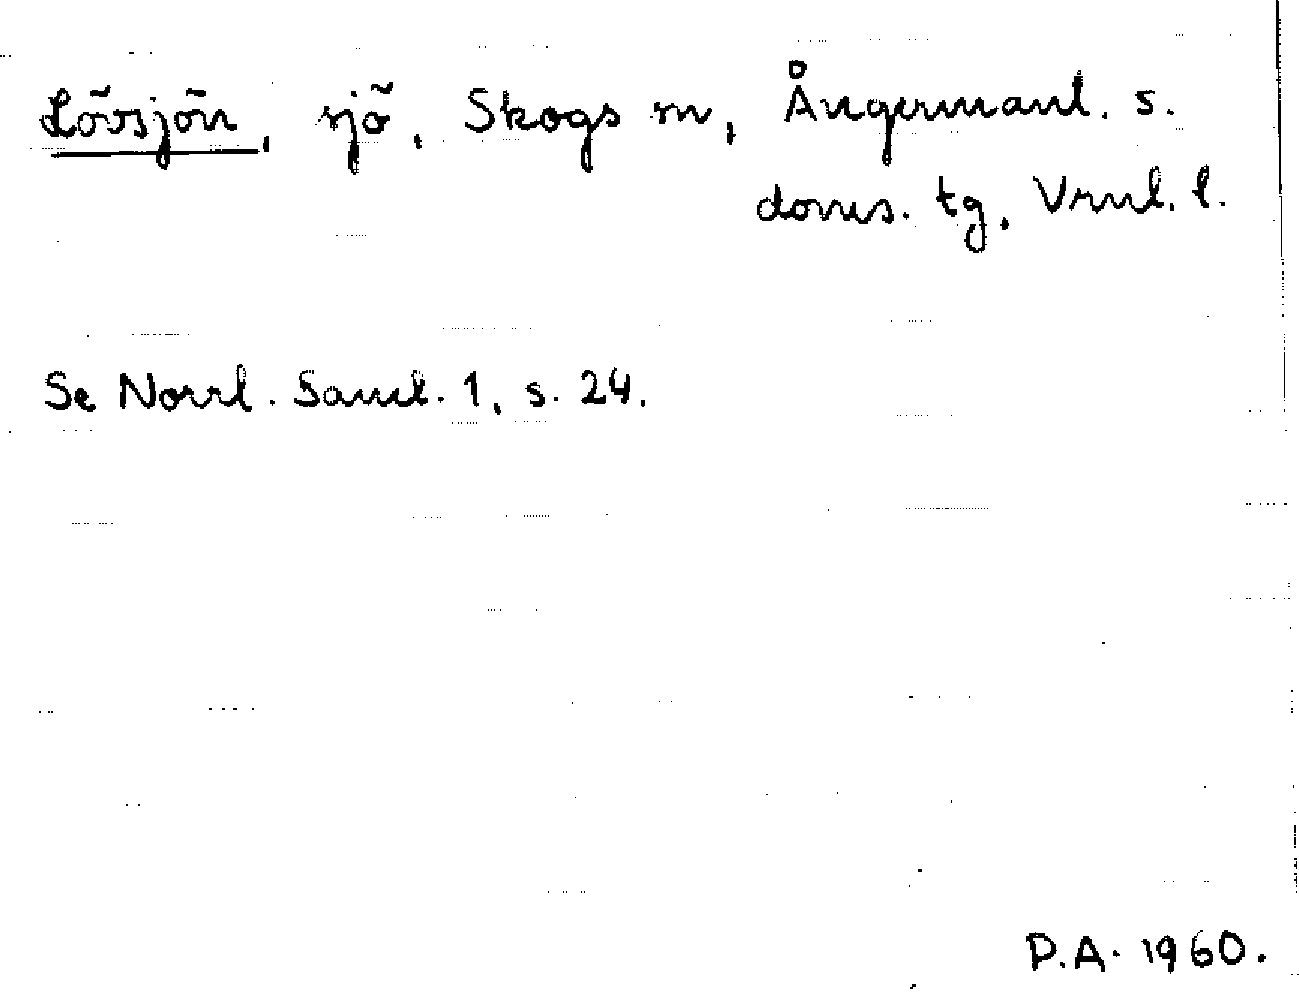 Lövsjön, sjö, Skogs sn, Ångermanl. s.
doms. tg, Vrnl. l.
Se Norrl. Saml. 1, s. 24.
P.A. 1960.